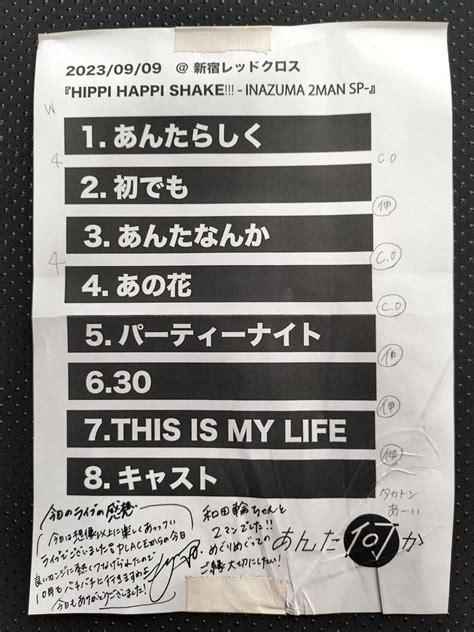 2023/09/09 @ 新宿レッドクロス
『HIPPI HAPPI SHAKE!!! - INAZUMA 2MAN SP-』
W
1. あんたらしく
4
C.O
2. 初でも
伸
3. あんたなんか
4
C.O
4. あの花
C.O
5. パーティーナイト
伸
6.30
伸
7.THIS IS MY LIFE
伸
8. キャスト
タカトン
あーい
今日のライブの感想
今日は想像以上に楽しくあつい
ライブでございました PLACEからの今日
良いカンジに
10月もバチバチに行きますわよ
今日もありがとうございました!
和田輪ちゃんと
2マンでした!!
めぐりめぐっての
ご縁 大切にしたい!
あんた何か